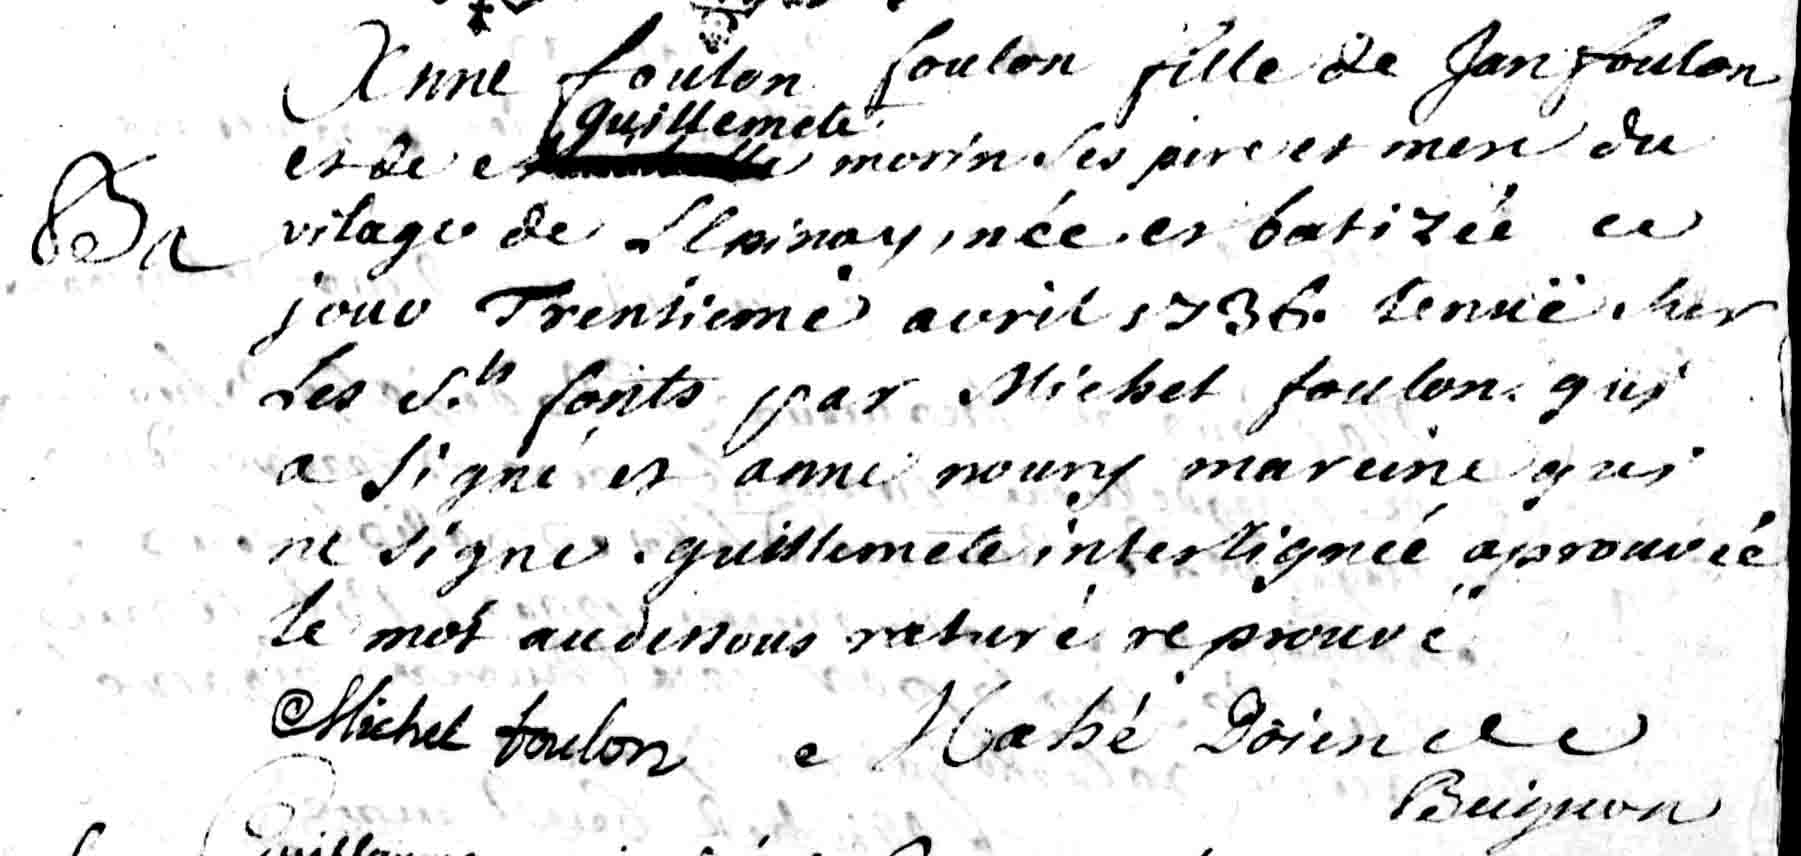 Anne foulon foulon fille de Jan foulon
guillemete
et de et morin ses pere et mere du
vilage de LEpinay, née et batizée ce
jour Trentieme avril 1736. tenuë sur
Les Sts fonts par Michel foulon qui
a signé et anne noury mareine qui
ne signe. guillemete interlignée aprouvée
le mot audessous raturé reprouvé
Michel foulon Mahé Doien de
Beignon